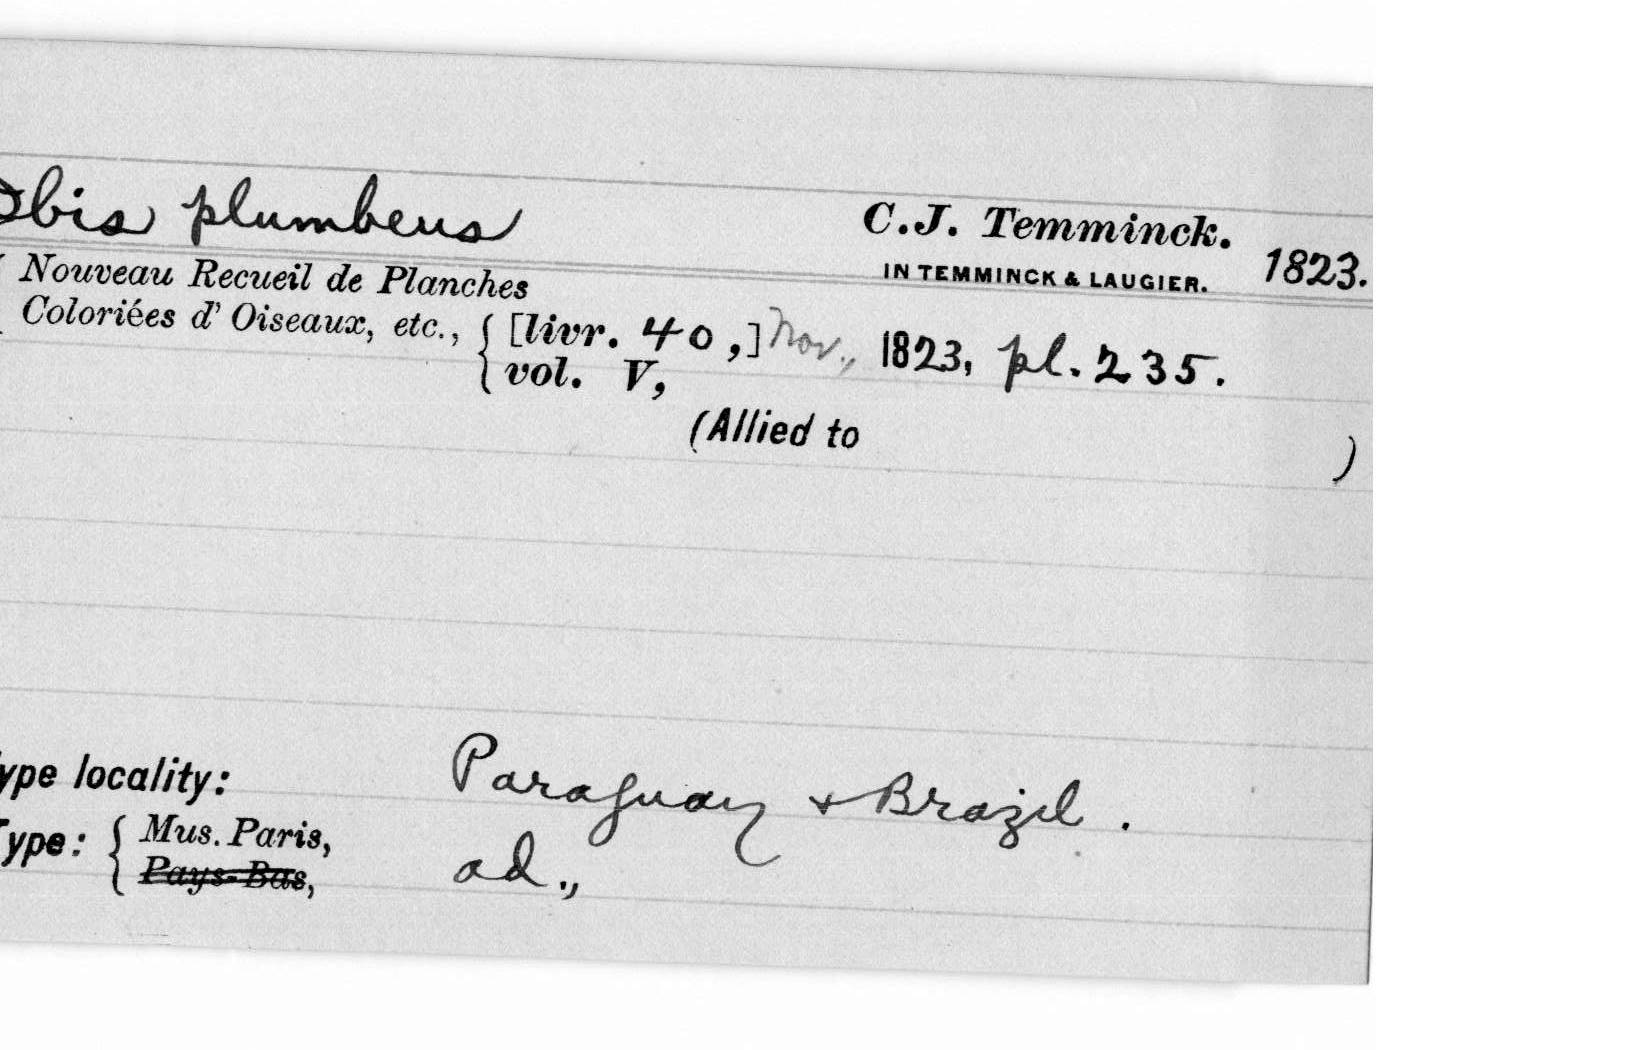 Ibis plumbeus C.J. Temminck.
IN TEMMINCK & LAUGIER. 1823.
Nouveau Recueil de Planches
Coloriées d' Oiseaux, etc., [livr. 40,] Nov., 1823, pl. 235.
vol. V,
(Allied to )
ype locality: Paraguay & Brazil.
Type: Mus. Paris, ad.,
Pays-Bas,